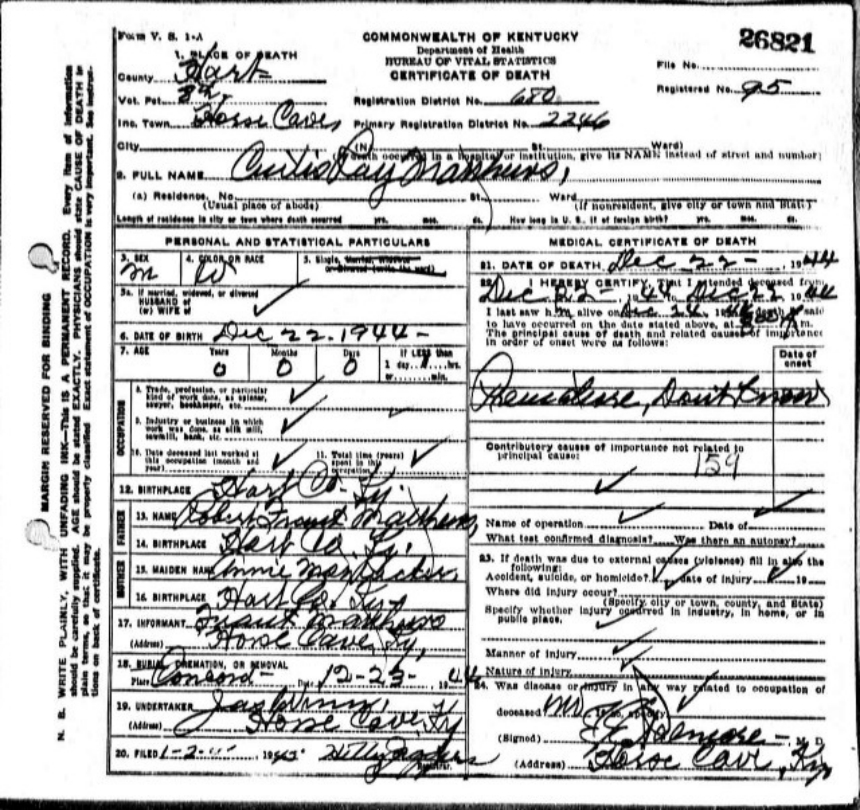 Form V. S. 1-A
COMMONWEALTH OF KENTUCKY
Department of Health
BUREAU OF VITAL STATISTICS
CERTIFICATE OF DEATH
26821
File No.
Registered No. 95
1. PLACE OF DEATH
County Hart
Vot. Pct.
Inc. Town Horse Cave
Registration District No. 680
Primary Registration District No. 2246
City (N St. Ward)
death occurred in a hospital or institution, give its NAME instead of street and number)
2. FULL NAME Curtis Ray Matthews,
(a) Residence. No. St. Ward
(Usual place of abode) (If nonresident, give city or town and State)
Length of residence in city or town where death occurred yrs. mos. ds. How long in U. S., if of foreign birth? yrs. mos. ds.
PERSONAL AND STATISTICAL PARTICULARS
3. SEX M
4. COLOR OR RACE W
5. Single, Married, Widowed
or Divorced (write the word)
5a. If married, widowed, or divorced
HUSBAND of
(or) WIFE of
6. DATE OF BIRTH Dec 22. 1944-
7. AGE Years Months Days If LESS than
0 0 0 1 day hrs.
or min.
OCCUPATION
8. Trade, profession, or particular
kind of work done, as spinner,
sawyer, bookkeeper, etc.
9. Industry or business in which
work was done, as silk mill,
sawmill, bank, etc.
10. Date deceased last worked at
this occupation (month and
year)
11. Total time (years)
spent in this
occupation
12. BIRTHPLACE Hart Co. Ky.
FATHER
13. NAME Robert Frank Matthews,
14. BIRTHPLACE Hart Co. Ky.
MOTHER
15. MAIDEN NAME Annie Mae
16. BIRTHPLACE Hart Co. Ky
17. INFORMANT Frank Matthews
(Address) Horse Cave, Ky,
18. BURIAL, CREMATION, OR REMOVAL
Place Concord- Date 12-23- 1944
19. UNDERTAKER
(Address) Horse Cave, Ky
20. FILED 1-2 1945
MEDICAL CERTIFICATE OF DEATH
21. DATE OF DEATH Dec 22- 1944
22. I HEREBY CERTIFY, That I attended deceased from
Dec 22- 1944 to Dec 22 1944
I last saw h alive on Dec death is said
to have occurred on the date stated above, at m.
The principal cause of death and related causes of importance
in order of onset were as follows:
Date of
onset
Premature, Don't Know
Contributory causes of importance not related to
principal cause:
159
Name of operation Date of
What test confirmed diagnosis? Was there an autopsy?
23. If death was due to external causes (violence) fill in also the
following:
Accident, suicide, or homicide? Date of injury 19
Where did injury occur?
(Specify city or town, county, and State)
Specify whether injury occurred in industry, in home, or in
public place.
Manner of injury
Nature of injury
24. Was disease or injury in any way related to occupation of
deceased? If so, specify
(Signed) M. D.
(Address) Horse Cave, Ky
MARGIN RESERVED FOR BINDING
N. B. WRITE PLAINLY, WITH UNFADING INK—This IS A PERMANENT RECORD. Every item of information
should be carefully supplied. AGE should be stated EXACTLY. PHYSICIANS should state CAUSE OF DEATH in
plain terms, so that it may be properly classified. Exact statement of OCCUPATION is very important. See instruc-
tions on back of certificate.